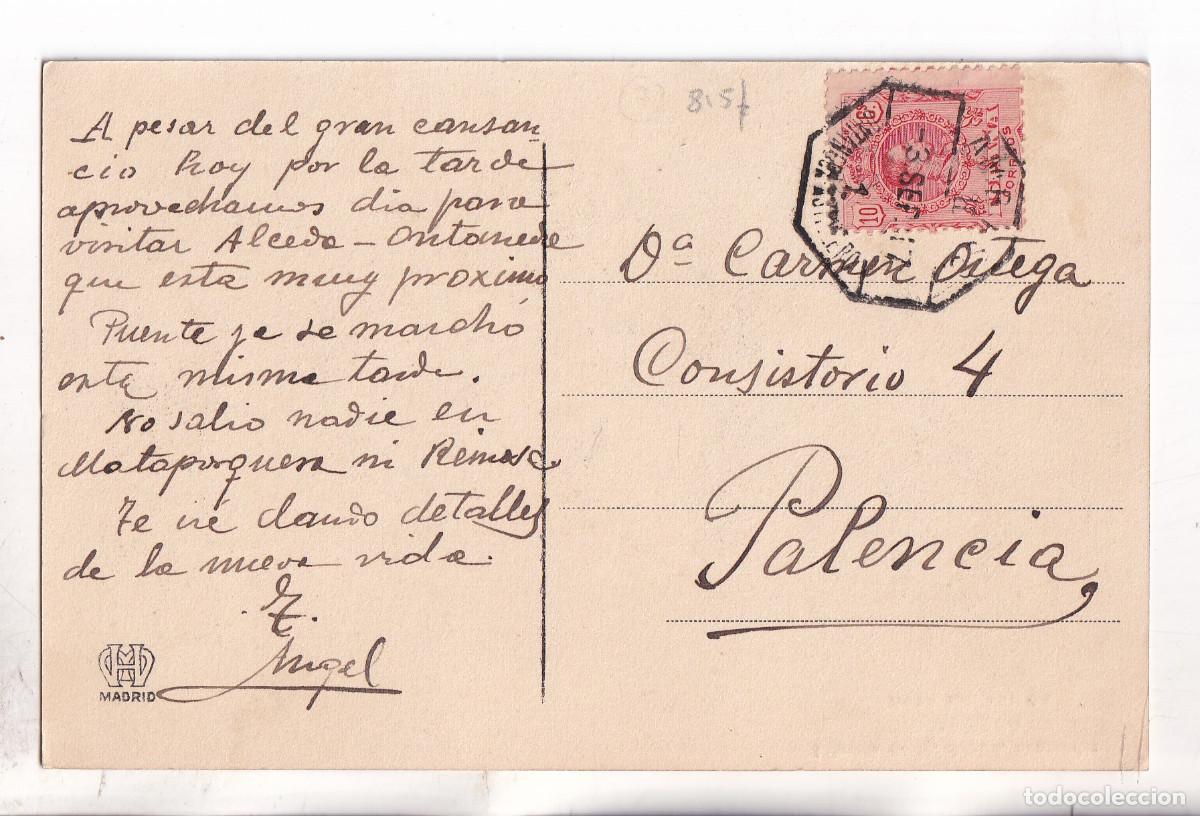 A pesar del gran cansan-
cio hoy por la tarde
aprovechamos dia para
visitar Alceda - Ontaneda
que esta muy proximo
Puente ya se marchó
esta misma tarde.
No salio nadie en
Mataporquera ni Reinosa
Te iré dando detalles
de la nueva vida.
T.
Angel
MADRID
8157
10
3 SEP
Dª Carmen Ortega
Consistorio 4
Palencia
todocoleccion